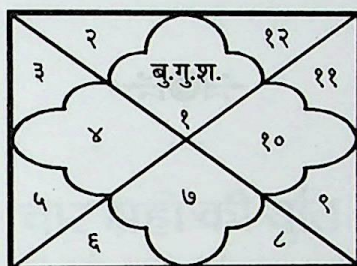 २ १२
३ बु.गु.श. ११
१
४ १०
५ ७ ९
६ ८